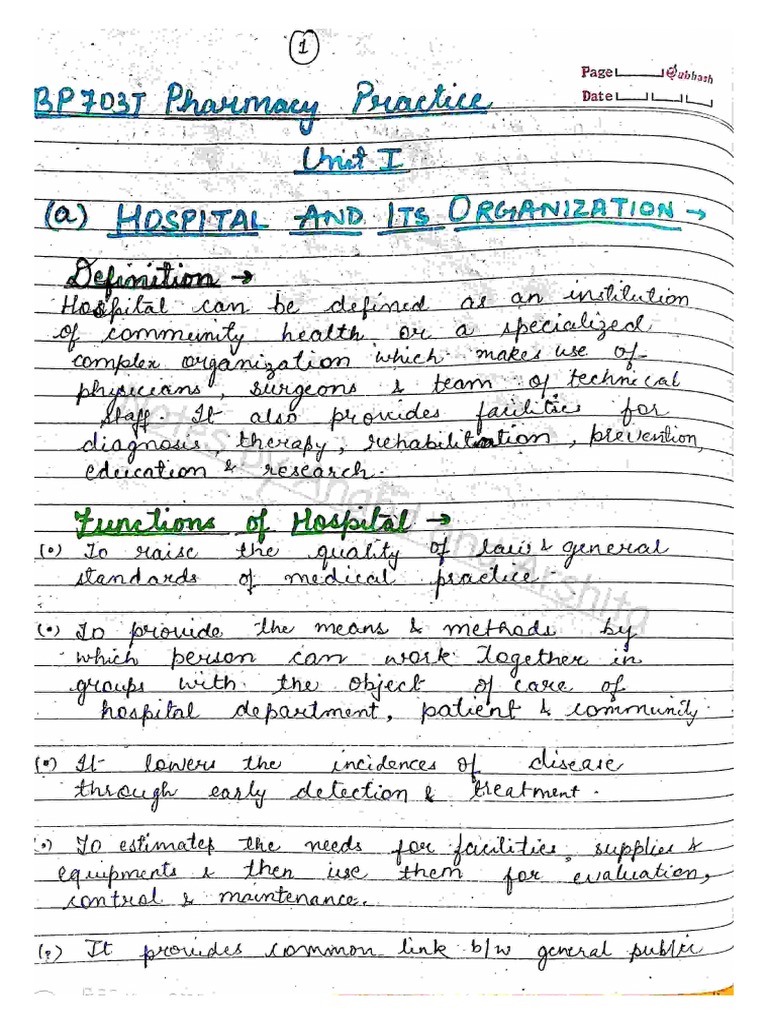 1
Page Subhash
Date
BP703T Pharmacy Practice
Unit I
(a) HOSPITAL AND ITS ORGANIZATION →
Definition →
Hospital can be defined as an institution
of community health or a specialized
complex organization which makes use of
physicians, surgeons & team of technical
staff. It also provides facilities for
diagnosis, therapy, rehabilitation, prevention,
education & research.
Functions of Hospital →
(•) To raise the quality of laws & general
standards of medical practice.
(•) To provide the means & methods by
which person can work together in
groups with the object of care of
hospital department, patient & community.
(•) It lowers the incidences of disease
through early detection & treatment.
(•) To estimates the needs for facilities, supplies &
equipments & then use them for evaluation,
control & maintenance.
(•) It provides common link b/w general public
Notes by Anafia Arshita